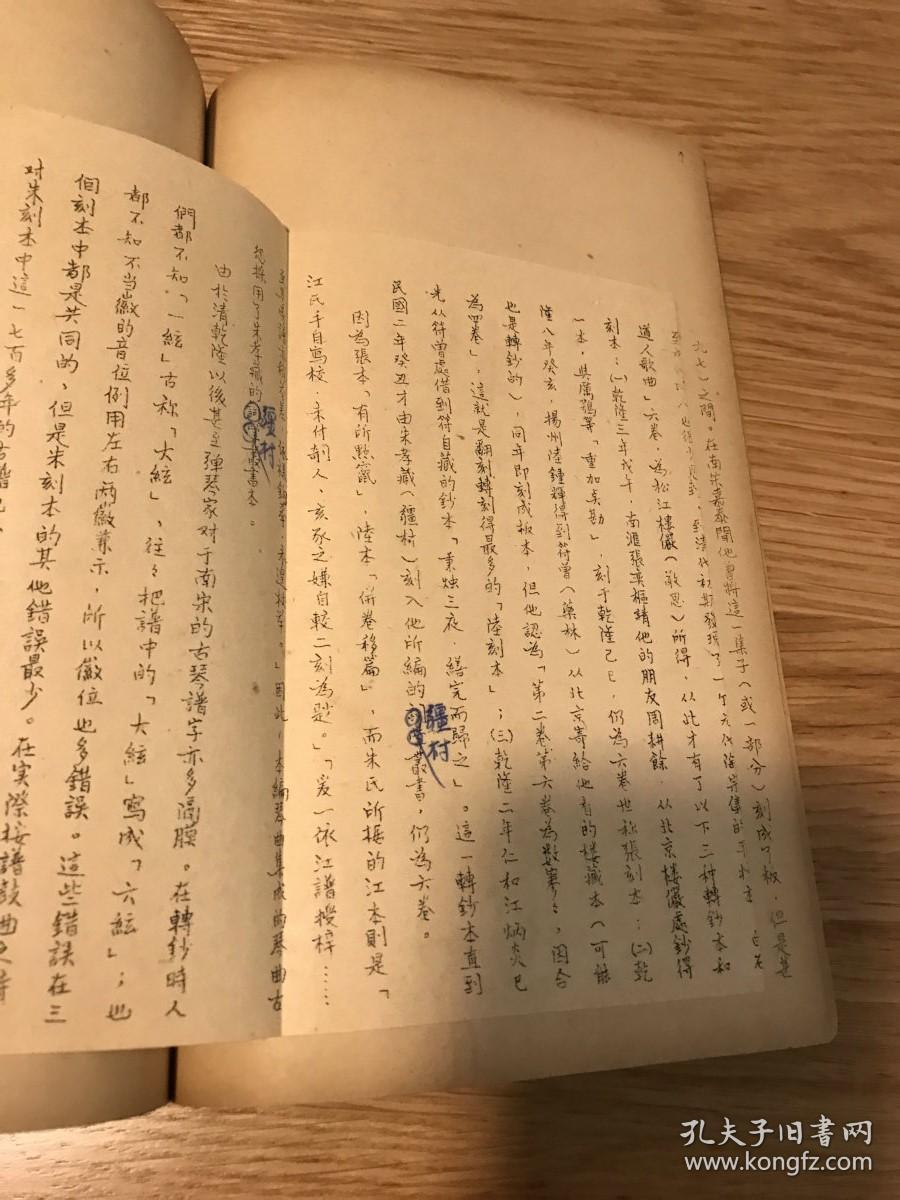 九七）之間。在南宋嘉泰間他曾將這一集子（或一部分）刻成了板，但是甚
到清代初期發現了一个元代陶宗儀的手抄本
道人歌曲」六卷，為松江樓儼（敬思）所得，从此才有了以下三种轉鈔本和
刻本：（一）乾隆三年戊午，南滙張奕樞請他的朋友周耕餘，从北京樓儼處鈔得
一本，與厲鶚等「重加美勘」，刻于乾隆己巳，仍为六卷也称張刻本；（二）乾
隆八年癸亥，揚州陸鍾輝得到符曾（藥林）从北京寄給他自的樓藏本（可能
也是轉鈔的），同年即刻成板本，但他認為「第二卷第六卷為数寡」，因合
為四卷」，這就是翻刻轉刻得最多的「陸刻本」；（三）乾隆二年仁和江炳炎已
先从符曾處借到符自藏的鈔本「秉烛三夜，繕完而歸之」。這一轉鈔本直到
民國二年癸丑才由朱孝臧（疆村）刻入他所編的疆村叢書，仍为六卷。
因為張本「有所點竄」，陸本「併卷移篇」，而朱氏所據的江本則是「
江氏手自寫校，未付削人，亥豕之嫌自較二刻為尠。」「爰一依江譜授梓……
因此，本編琴曲集成的琴曲古
怨採用了朱孝臧的疆村叢書本。
由於清乾隆以後甚至弹琴家对于南宋的古琴譜字亦多隔膜。在轉鈔時人
們都不知「一絃」古称「大絃」，往々把譜中的「大絃」寫成「六絃」；也
都不知不当徽的音位例用左右两徽兼示，所以徽位也多錯误。這些錯誤在三
個刻本中都是共同的，但是朱刻本的其他錯誤最少。在实際按譜鼓曲之時
对朱刻本中這一七百多年的古譜
孔夫子旧書网
www.kongfz.com